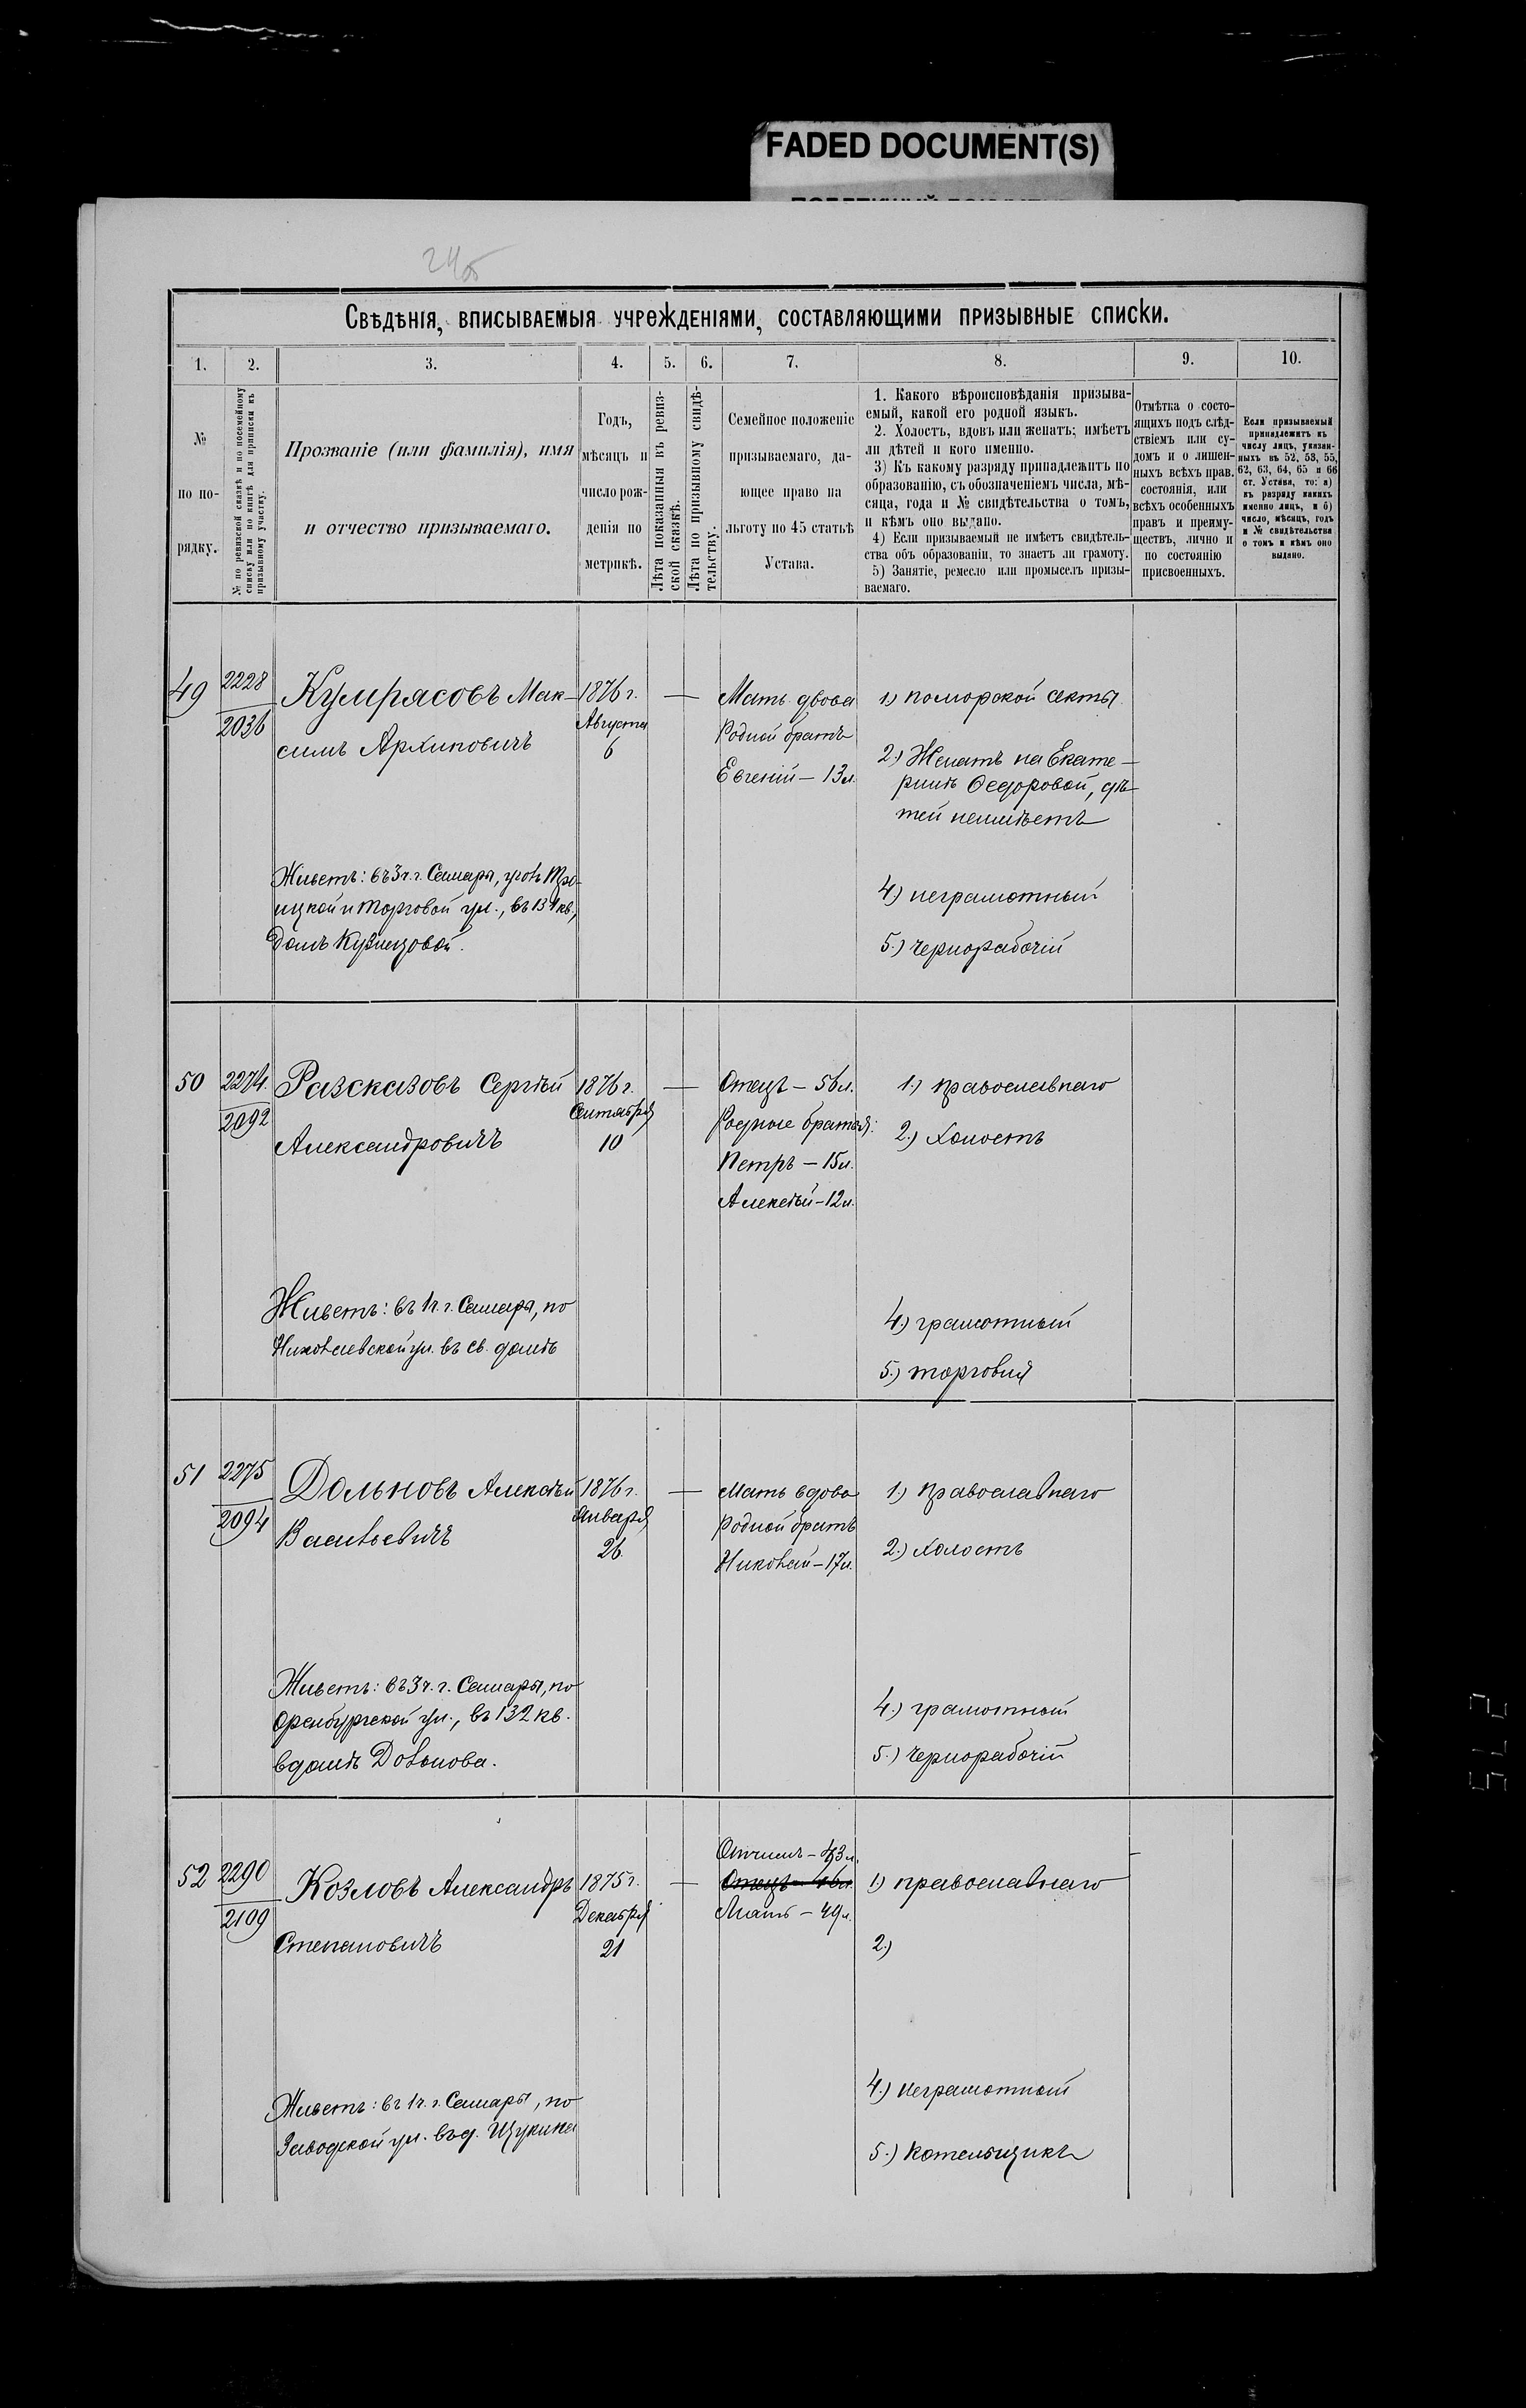 FADED DOCUMENT(S)
245
Свѣдѣнія, вписываемыя учрежденіями, составляющими призывные списки.
1. 2. 3. 4. 5. 6. 7. 8. 9. 10.
№
по по-
рядку.
№ по ревизской сказкѣ и по посемейному
списку или по книгѣ для приписки къ
призывному участку.
Прозваніе (или фамилія), имя
и отчество призываемаго.
Годъ,
мѣсяцъ и
число рож-
денія по
метрикѣ.
Лѣта показанныя въ ревиз-
ской сказкѣ.
Лѣта по призывному свидѣ-
тельству.
Семейное положеніе
призываемаго, да-
ющее право на
льготу по 45 статьѣ
Устава.
1. Какого вѣроисповѣданія призыва-
емый, какой его родной языкъ.
2. Холостъ, вдовъ или женатъ; имѣетъ
ли дѣтей и кого именно.
3) Къ какому разряду принадлежитъ по
образованію, съ обозначеніемъ числа, мѣ-
сяца, года и № свидѣтельства о томъ,
и кѣмъ оно выдано.
4) Если призываемый не имѣетъ свидѣтель-
ства объ образованіи, то знаетъ ли грамоту.
5) Занятіе, ремесло или промыселъ призы-
ваемаго.
Отмѣтка о состо-
ящихъ подъ слѣд-
ствіемъ или су-
домъ и о лишен-
ныхъ всѣхъ прав.
состоянія, или
всѣхъ особенныхъ
правъ и преиму-
ществъ, лично и
по состоянію
присвоенныхъ.
Если призываемый
принадлежитъ къ
числу лицъ, указан-
ныхъ въ 52, 53, 55,
62, 63, 64, 65 и 66
ст. Устава, то: а)
къ разряду какихъ
именно лицъ, и б)
число, мѣсяцъ, годъ
и № свидѣтельства
о томъ и кѣмъ оно
выдано.
49
2228
2036
Кумрясовъ Мак-
симъ Архиповичъ
Живетъ: въ 3 ч. г. Самары, уголъ Тро-
ицкой и Торговой ул., въ 131 кв.,
Домъ Кузнецовой.
1876 г.
Августа
6
—
Мать вдова
Родной братъ
Евгеній – 13 л.
1) поморской секты
2) Женатъ на Екате-
ринѣ Ѳедоровой, дѣ-
тей неимѣетъ
4) неграмотный
5.) чернорабочій
50
2274.
2092
Разсказовъ Сергѣй
Александровичъ
Живетъ: въ 1 ч. г. Самары, по
Николаевской ул. въ св. домѣ
1876 г.
Сентября
10
—
Отецъ – 56 л.
Родные братья:
Петръ – 15 л.
Алексѣй – 12 л.
1.) православнаго
2.) Холостъ
4.) грамотный
5.) торговля
51
2275
2094
Дольновъ Алексѣй
Васильевичъ
Живетъ: въ 3 ч. г. Самары, по
Оренбургской ул., въ 132 кв.
вдомѣ Дольнова.
1876 г.
Января
26
—
Мать вдова
Родной братъ
Николай – 17 л.
1.) Православнаго
2.) Холостъ
4.) грамотный
5.) Чернорабочій
52
2290
2109
Козловъ Александръ
Степановичъ
Живетъ: въ 1 ч. г. Самары, по
Заводской ул. въ д. Щукина
1875 г.
Декабря
21
—
Отчимъ – 43 л.
Отецъ – 46 л.
Мать – 49 л.
1) православнаго
2.)
4.) неграмотный
5.) Котельщикъ